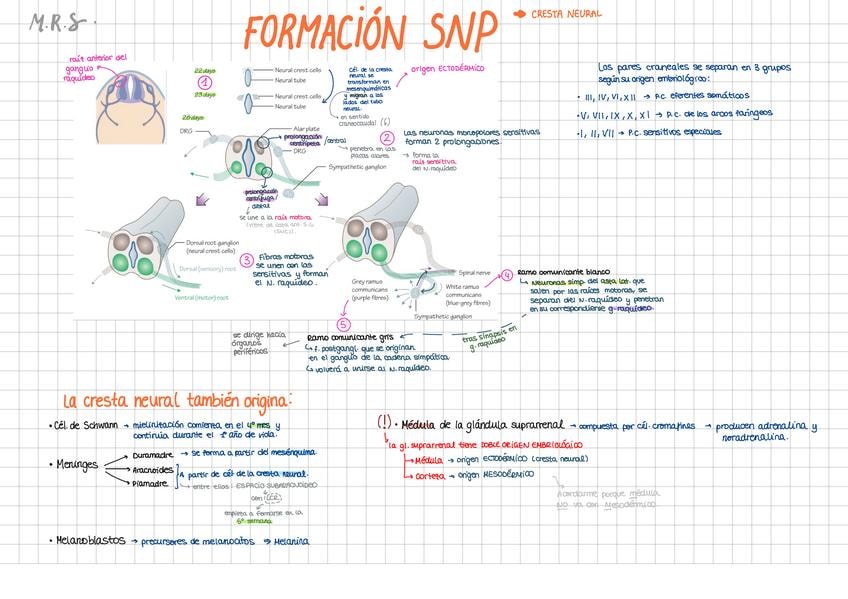 M.R.S
FORMACIÓN SNP → CRESTA NEURAL
raíz anterior del
ganglio
raquídeo
22 days
1
23 days
26 days
Neural crest cells
Neural tube
Neural crest cells
Neural tube
Cél. de la cresta
neural se
transforman en
mesenquimáticas
y migran a los
lados del tubo
neural.
→ en sentido
craneocaudal (!)
origen ECTODÉRMICO
Los pares craneales se separan en 3 grupos
según su origen embriológico:
• III, IV, VI, XII → P.C. eferentes somáticos
• V, VII, IX, X, XI → P.C. de los arcos faríngeos
• I, II, VII → P.C. sensitivos especiales
DRG
Alar plate
prolongación
centrípeta /central
DRG
penetra en las
placas alares
Sympathetic ganglion
2 Las neuronas monopolares sensitivas
forman 2 prolongaciones.
→ forma la
raíz sensitiva
del N. raquídeo
prolongación
centrífuga /
distal
se une a la raíz motora
Dorsal root ganglion
(neural crest cells)
Dorsal (sensory) root
Ventral (motor) root
3 Fibras motoras
se unen con las
sensitivas y forman
el N. raquídeo.
Spinal nerve
Grey ramus
communicans
(purple fibres)
White ramus
communicans
(blue-grey fibres)
Sympathetic ganglion
4 Ramo comunicante blanco
↳ Neuronas simp. del asta lat. que
salen por las raíces motoras, se
separan del N. raquídeo y penetran
en su correspondiente g. raquídeo.
5
Ramo comunicante gris
↳ f. postgangl. que se originan
en el ganglio de la cadena simpática
↳ volverá a unirse al N. raquídeo.
se dirige hacia
órganos
periféricos
tras sinapsis en
g. raquídeo
La cresta neural también origina:
• Cél. de Schwann → mielinización comienza en el 4º mes y
continúa durante el 1º año de vida.
• Meninges
Duramadre → se forma a partir del mesénquima.
Aracnoides
Piamadre
A partir de cél. de la cresta neural.
→ entre ellas: ESPACIO SUBARACNOIDEO
con LCR
empieza a formarse en la
5ª semana
• Melanoblastos → precursores de melanocitos ⇒ Melanina
(!) • Médula de la glándula suprarrenal → compuesta por cél. cromafines → producen adrenalina y
noradrenalina.
la gl. suprarrenal tiene DOBLE ORIGEN EMBRIOLÓGICO
→ Médula → origen ECTODÉRMICO (cresta neural)
→ Corteza → origen MESODÉRMICO
Acordarme porque médula
NO va con Mesodérmico